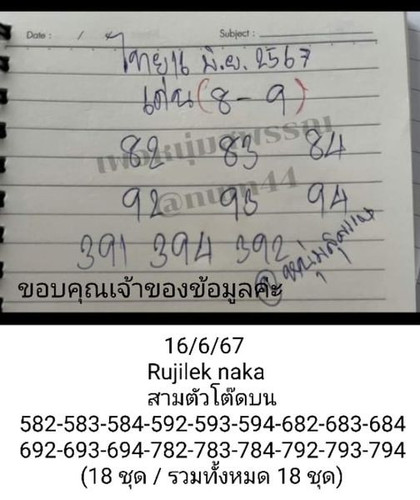 Date : / / Subject :
ไทย 16 มิ.ย. 2567
เด่น (8-9)
82 83 84
92 93 94
391 394 392
ขอบคุณเจ้าของข้อมูลค่ะ
16/6/67
Rujilek naka
สามตัวโต๊ดบน
582-583-584-592-593-594-682-683-684
692-693-694-782-783-784-792-793-794
(18 ชุด / รวมทั้งหมด 18 ชุด)